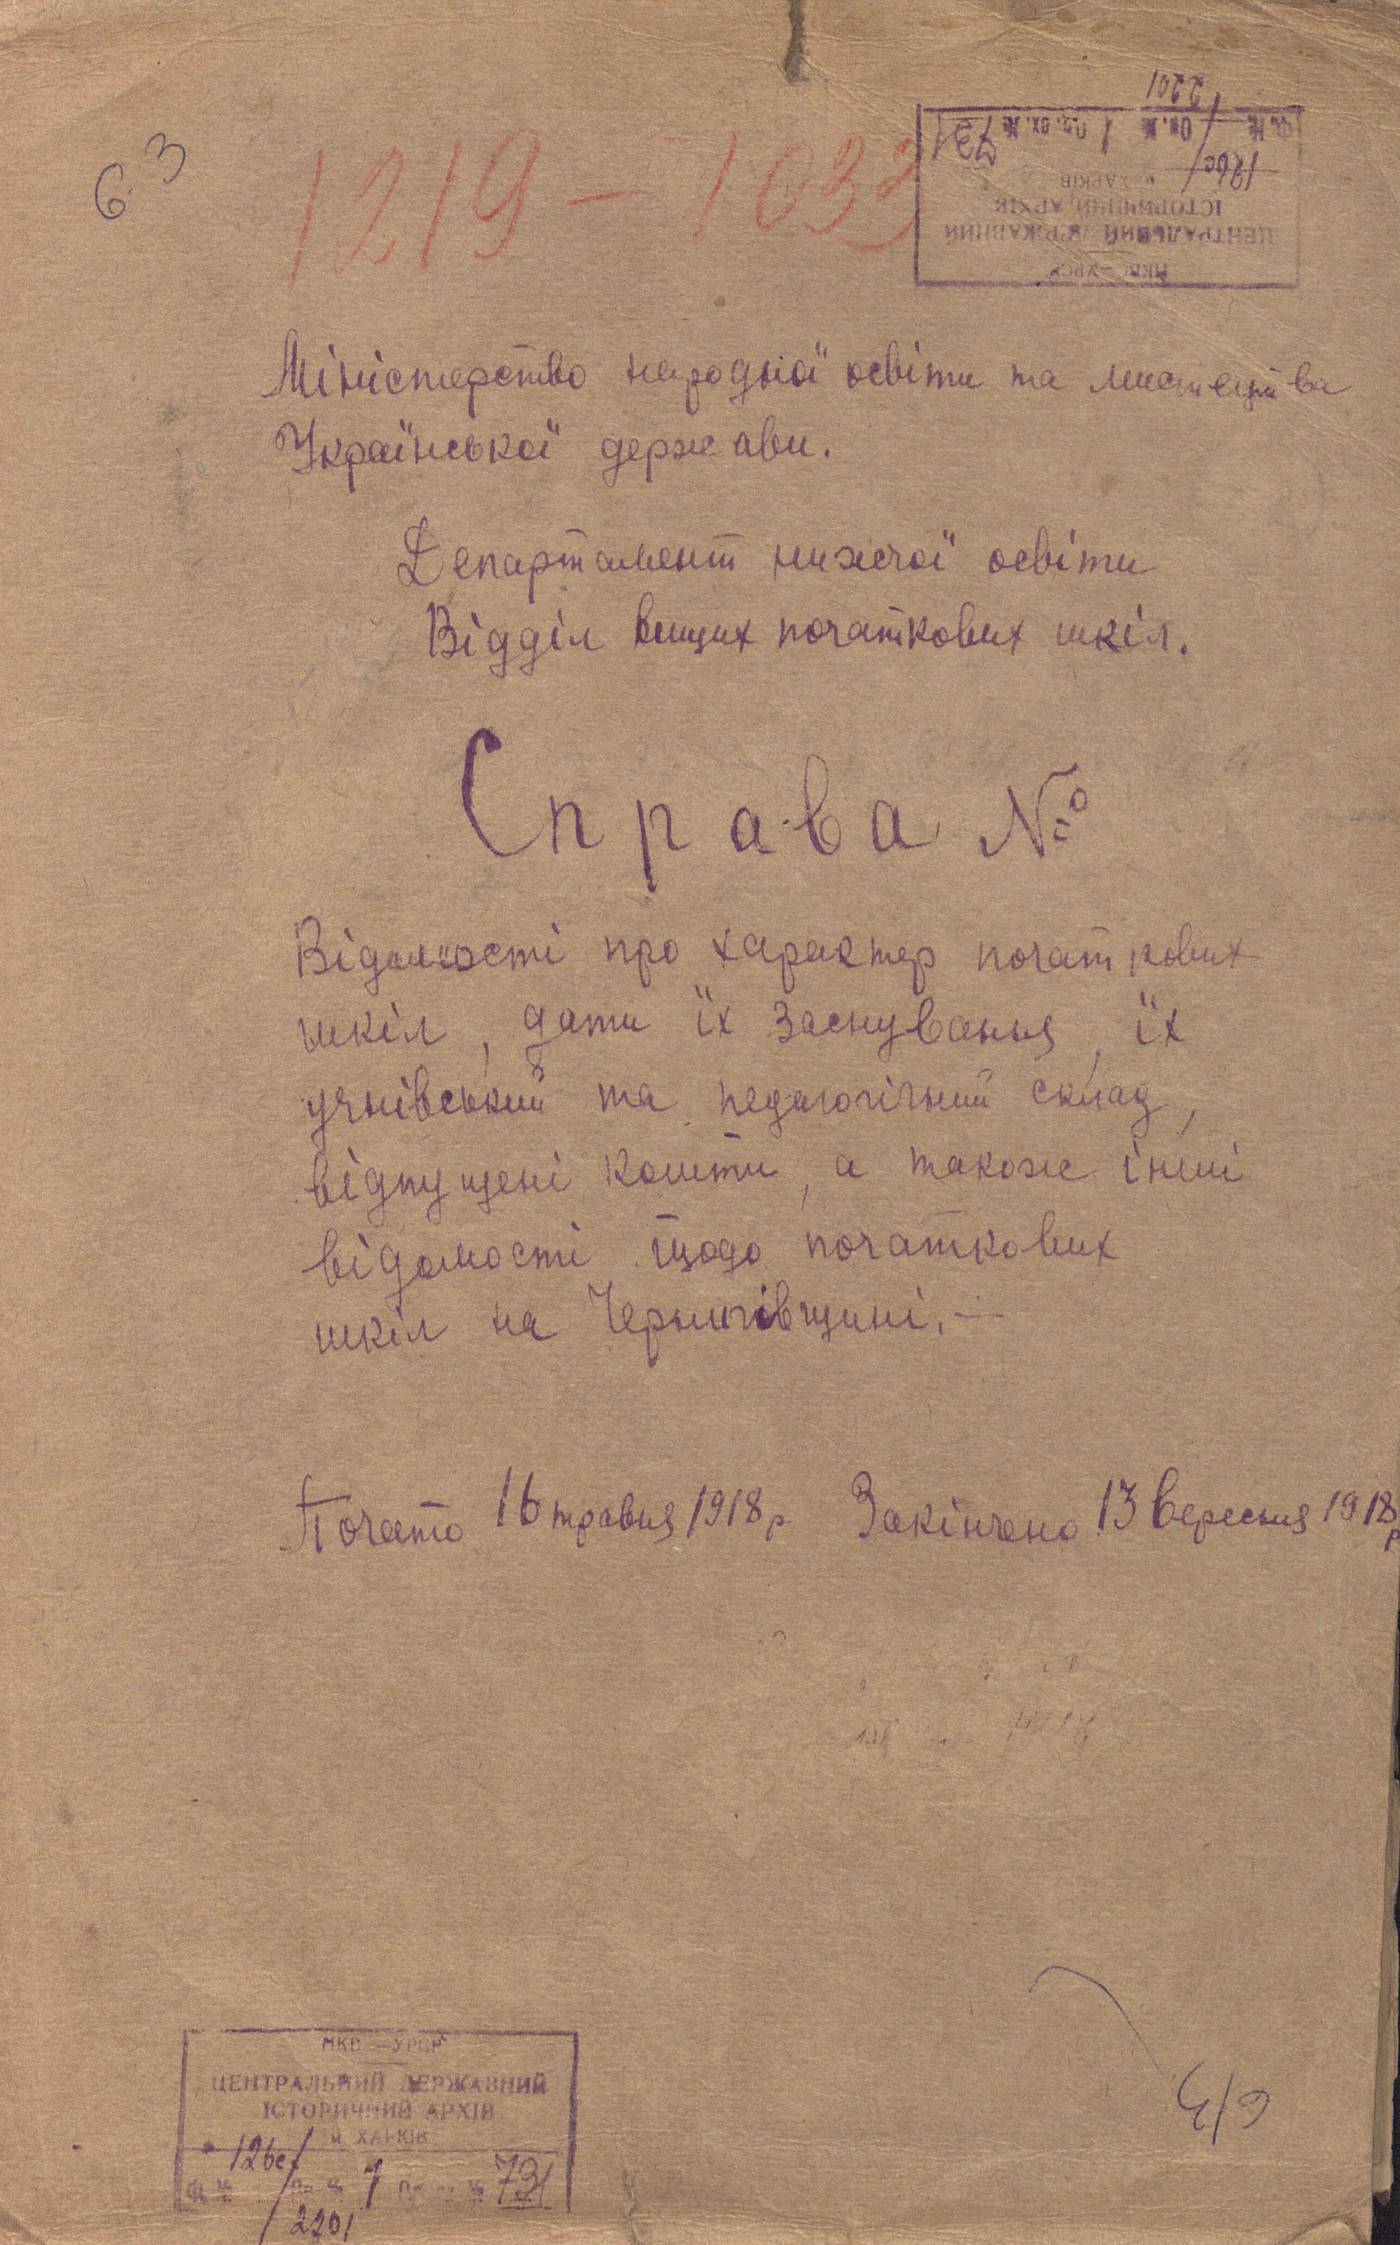 63
1219 — 1033
НКВС — УРСР
ЦЕНТРАЛЬНИЙ ДЕРЖАВНИЙ
ІСТОРИЧНИЙ АРХІВ
м. ХАРКІВ
Ф. № 126с/2201 Оп. № 1 Од. зх. № 731
Міністерство народньої освіти та мистецтва
Української держави.
Департамент нижчої освіти
Відділ вищих початкових шкіл.
Справа №
Відомості про характер початкових
шкіл, дати їх заснування, їх
учнівський та педагогічний склад,
відпущені кошти, а також інші
відомості щодо початкових
шкіл на Чернигівщині. —
Почато 16 травня 1918 р Закінчено 13 вересня 1918 р
НКВС — УРСР
ЦЕНТРАЛЬНИЙ ДЕРЖАВНИЙ
ІСТОРИЧНИЙ АРХІВ
м. ХАРКІВ
Ф. № 126с/2201 Оп. № 1 Од. зх. № 731